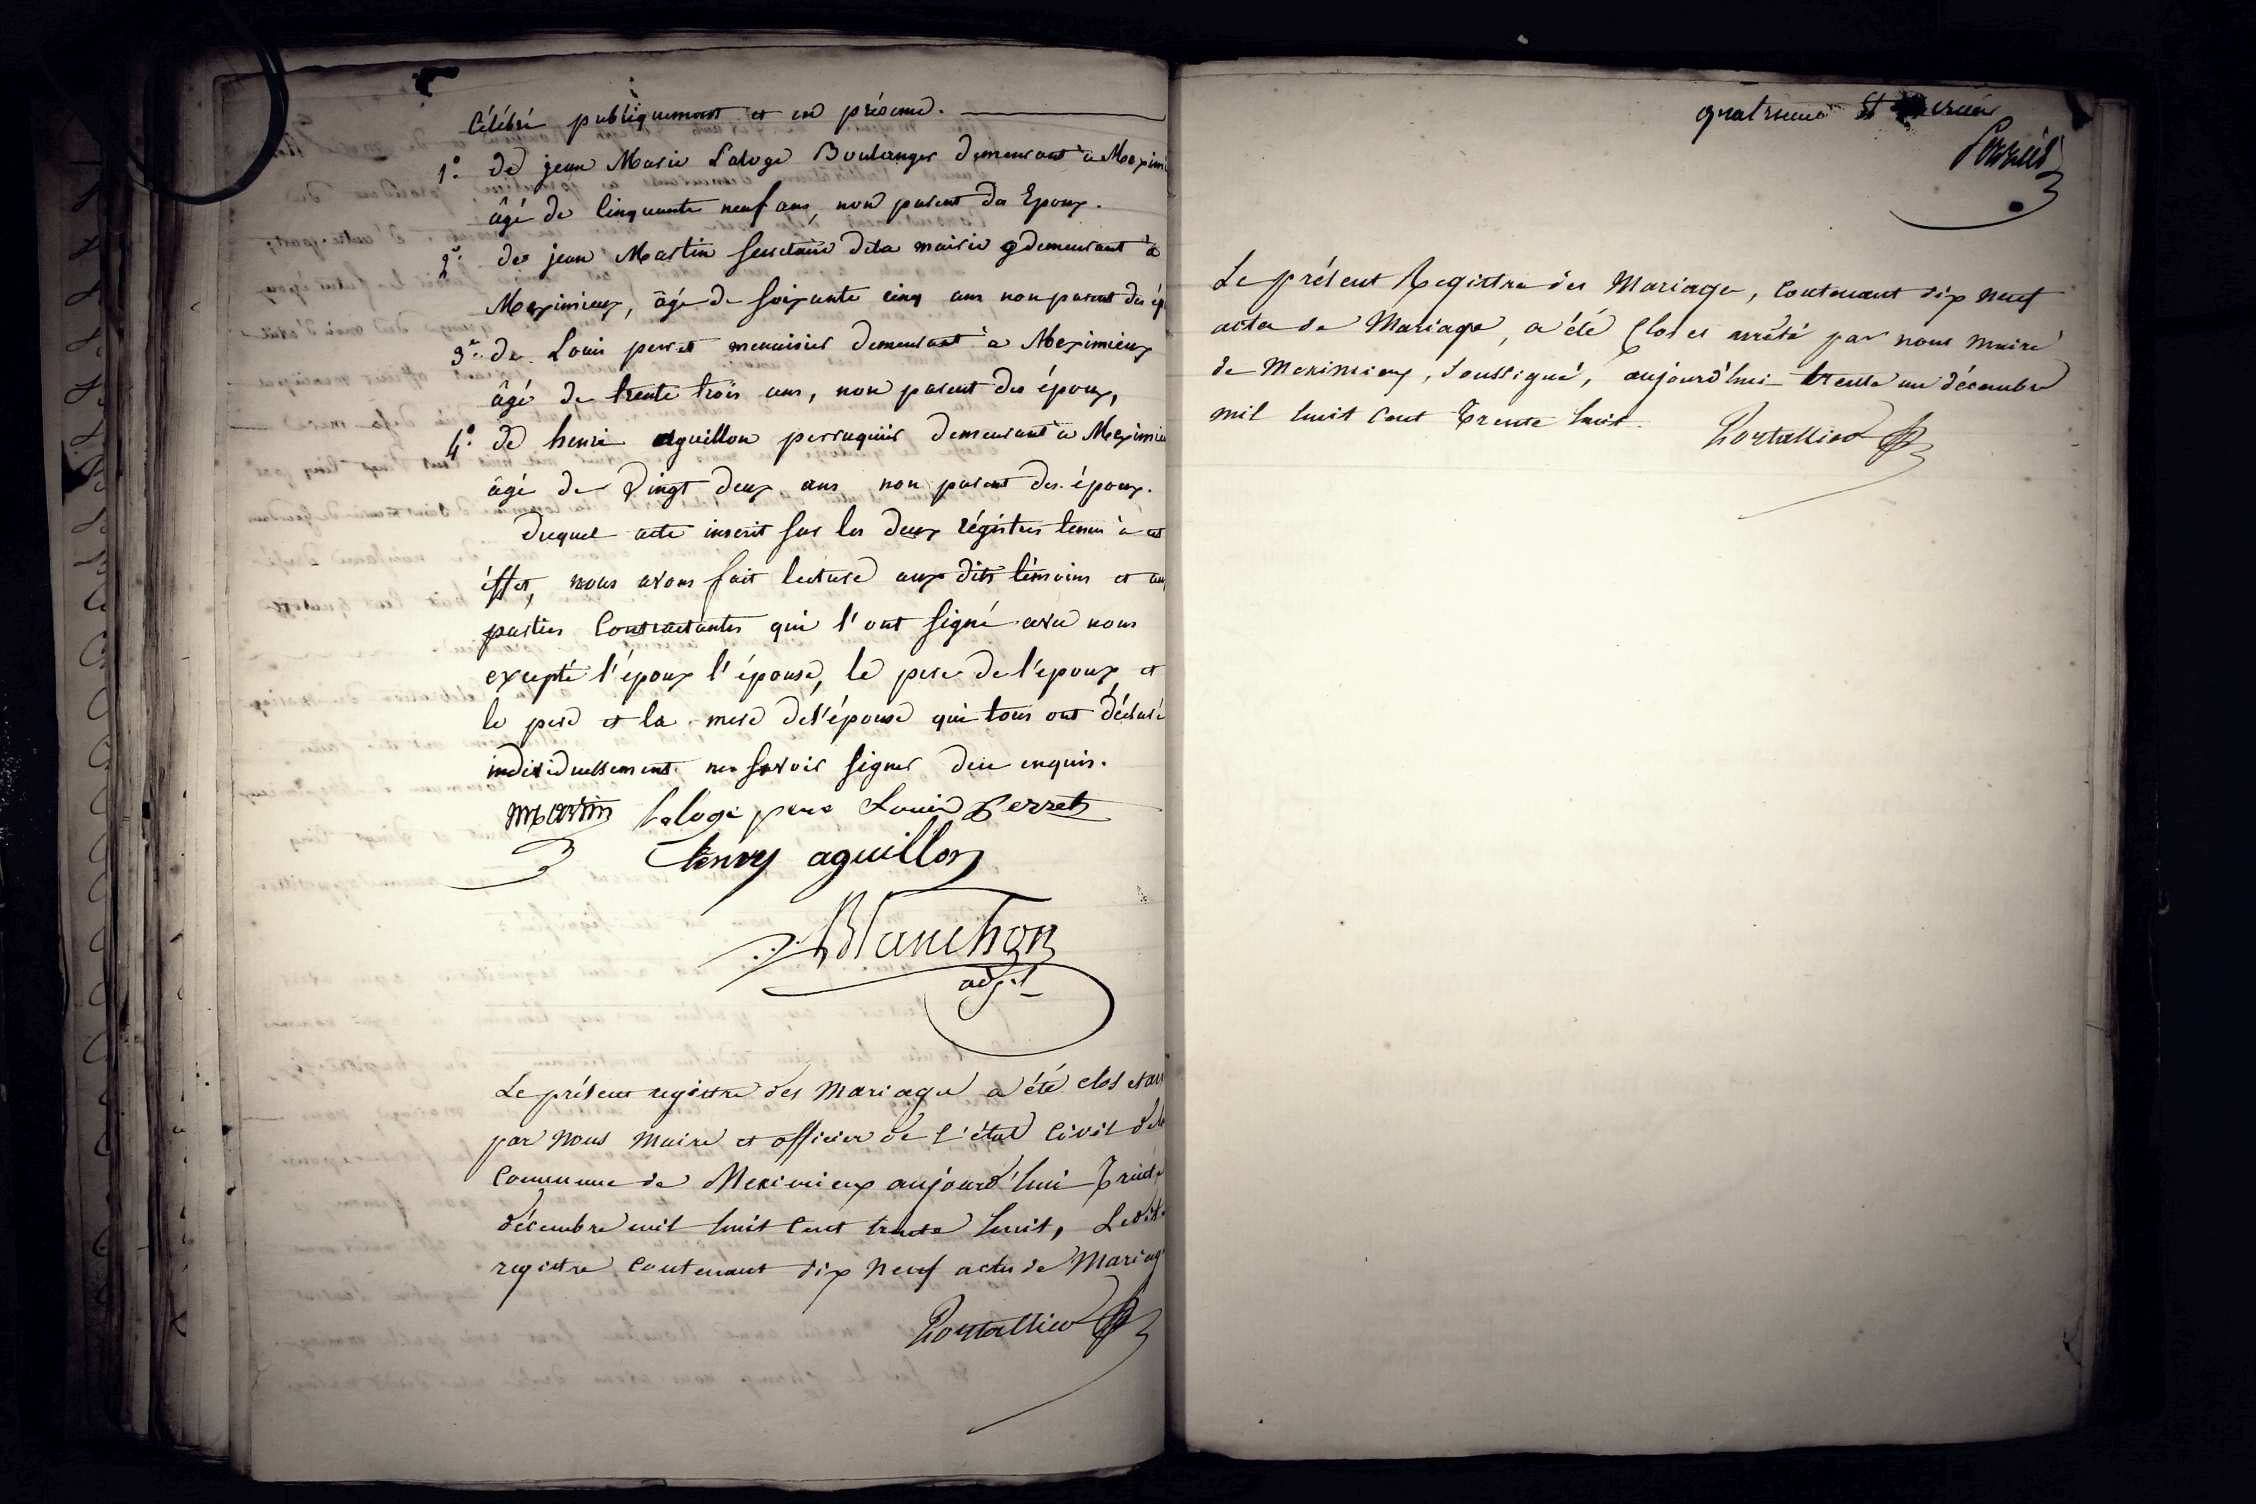 Célébré publiquement et en présence.
1° de jean Marie Laloge Boulanger demeurant à Meximi
âgé de Cinquante neuf ans, non parent des Epoux.
2° de jean Martin Secrétaire dela mairie demeurant à
Meximieux, âgé de soixante cinq ans non parent des ép
3° de Louis perret menuisier demeurant à Meximieux
âgé de trente trois ans, non parent des époux,
4° de henri aguillon perruquier demeurant à Meximieu
âgé de Vingt deux ans non parent des époux.
Duquel acte inscrit sur les deux régistres tenus à cet
éffet, nous avons fait lecture aux dits témoins et aux
parties Contractantes qui l'ont signé avec nous
excepté l'époux l'épouse, le pere de l'epoux, et
le pere et la mere del'épouse qui tous ont déclaré
individuellement ne savoir signer de ce enquis.
Martin Laloge pere Louis Perret
henry aguillon
Blanchon
adj.t
Le présent registre des Mariages a été clos et arr
par Nous Maire et officier de l'état Civil dela
Commune de Meximieux aujourd'hui Trente
décembre mil huit Cent trente huit, Ledit
registre Contenant dix Neuf actes de Mariag
Portallier
quatrieme et
Le présent Registre des Mariages, Contenant dix neuf
actes de Mariage, a été Clos et arrêté par nous Maire
de Meximieux, Soussigné, aujourd'hui trente un décembre
mil huit Cent Trente huit.
Portallier